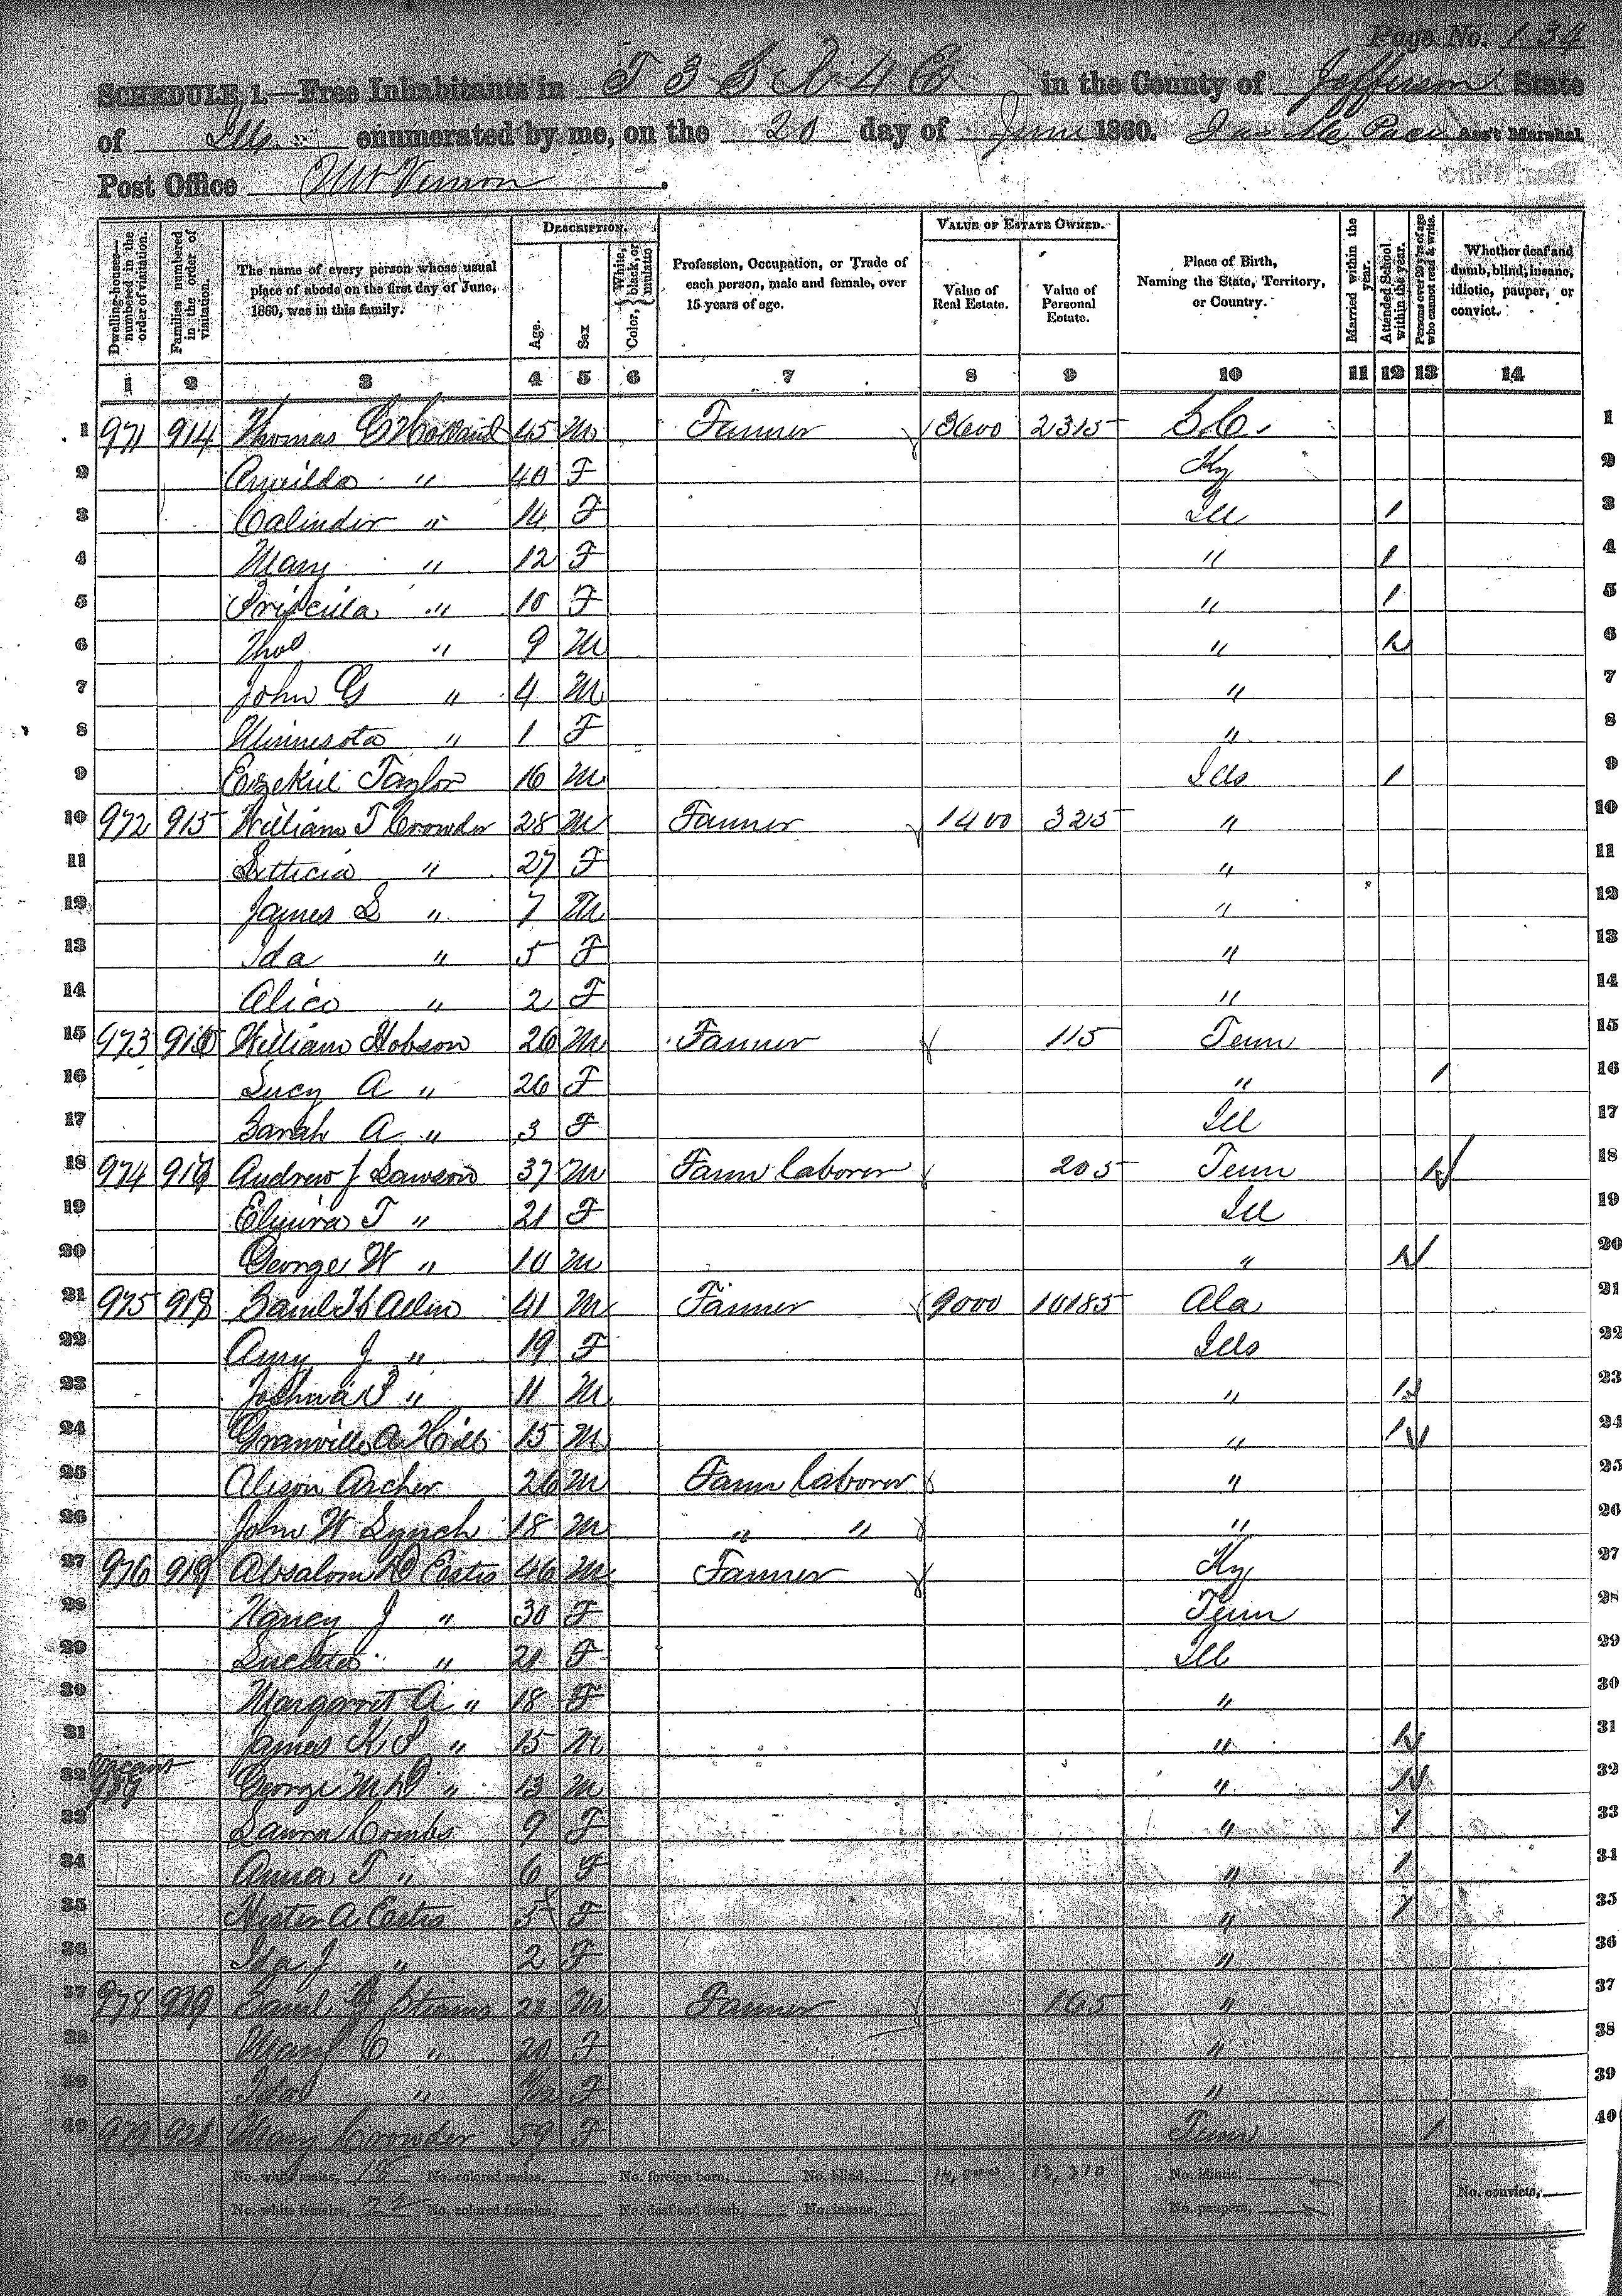 Page No. 134
SCHEDULE 1.—Free Inhabitants in T 3 S R 4 E in the County of Jefferson State
of Ills. enumerated by me, on the 20 day of June 1860. Pace Ass't Marshal.
Post Office Mt Vernon.
Dwelling-houses—numbered in the order of visitation. Families numbered in the order of visitation. The name of every person whose usual place of abode on the first day of June, 1860, was in this family. DESCRIPTION. Age. Sex Color, {White, black, or mulatto} Profession, Occupation, or Trade of each person, male and female, over 15 years of age. VALUE OF ESTATE OWNED. Value of Real Estate. Value of Personal Estate. Place of Birth, Naming the State, Territory, or Country. Married within the year. Attended School within the year. Persons over 20 y'rs of age who cannot read & write. Whether deaf and dumb, blind, insane, idiotic, pauper, or convict.
1 2 3 4 5 6 7 8 9 10 11 12 13 14
1 971 914 Thomas G Holland 45 M Farmer 3600 2315 S.C. 1
2 " 40 F Ky 2
3 " 14 F Ill 1 3
4 Mary " 12 F " 1 4
5 Priscilla " 10 F " 1 5
6 Thos " 9 M " 1 6
7 John G " 4 M " 7
8 Minnesota " 1 F " 8
9 Ezekiel Taylor 16 M Ills 1 9
10 972 915 William T Crowder 28 M Farmer 1400 325 " 10
11 Letticia " 27 F " 11
12 James L " 7 M " 12
13 Ida " 5 F " 13
14 Alice " 2 F " 14
15 973 916 William Hobson 26 M Farmer 115 Tenn 15
16 Lucy A " 26 F " 1 16
17 Sarah A " 3 F Ill 17
18 974 917 Andrew J Lawson 37 M Farm laborer 205 Tenn 1 18
19 Elmira T " 21 F Ill 19
20 George W " 10 M " 1 20
21 975 918 Saml H Allen 41 M Farmer 9000 10185 Ala 21
22 Amy J " 19 F Ills 22
23 Joshua " 11 M " 1 23
24 Granville A Hill 15 M " 1 24
25 Alison Archer 26 M Farm laborer " 25
26 John W Lynch 18 M " " " 26
27 976 919 Absalom Estes 46 M Farmer Ky 27
28 Nancy J " 30 F Tenn 28
29 " 21 F Ill 29
30 Margaret A " 18 F " 30
31 James K P " 15 M " 1 31
32 vacant George " 13 M " 1 32
33 Laura Combs 9 F " 1 33
34 Anna T " 6 F " 1 34
35 Hester A Estes 5 F " 1 35
36 Ida J " 2 F " 36
37 978 Saml 21 M Farmer 165 " 37
38 Mary C " 20 F " 38
39 Ida " F " 39
40 979 921 Mary Crowder 59 F Tenn 1 40
No. white males, 18 No. colored males, No. foreign born, No. blind, 14,000 13,310 No. idiotic, No. convicts,
No. white females, 22 No. colored females, No. deaf and dumb, No. insane, No. paupers,